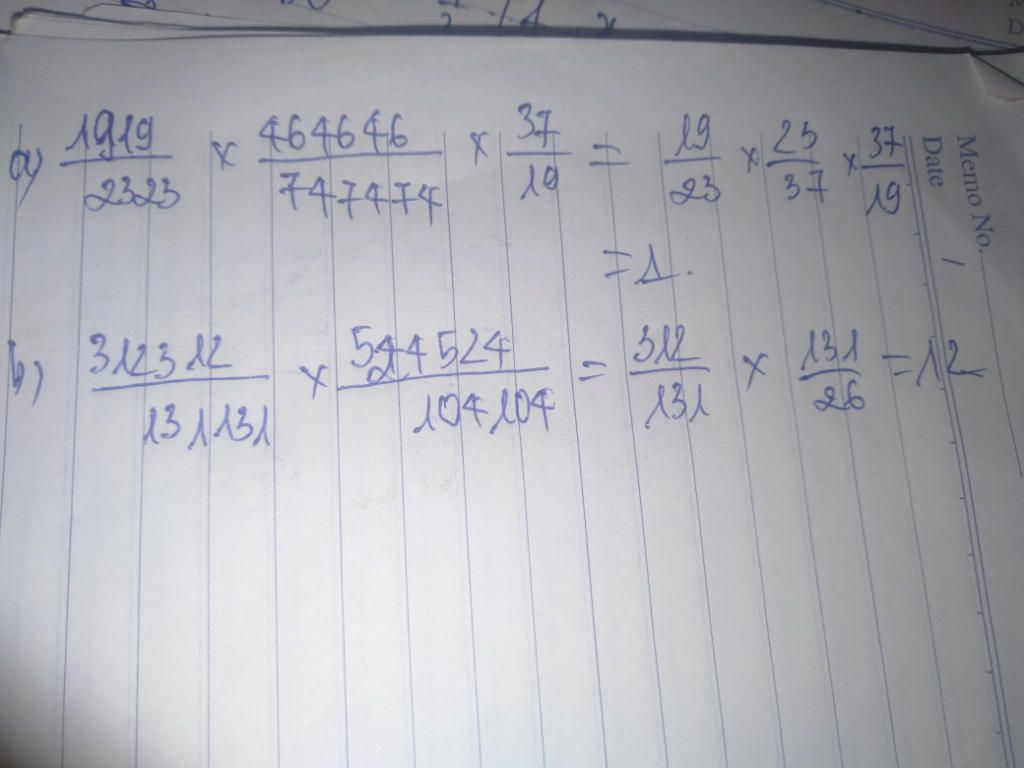 a) 1919/2323 x 464646/747474 x 37/19 = 19/23 x 23/37 x 37/19
= 1.
b) 312312/131131 x 524524/104104 = 312/131 x 131/26 = 12
Memo No.
Date /